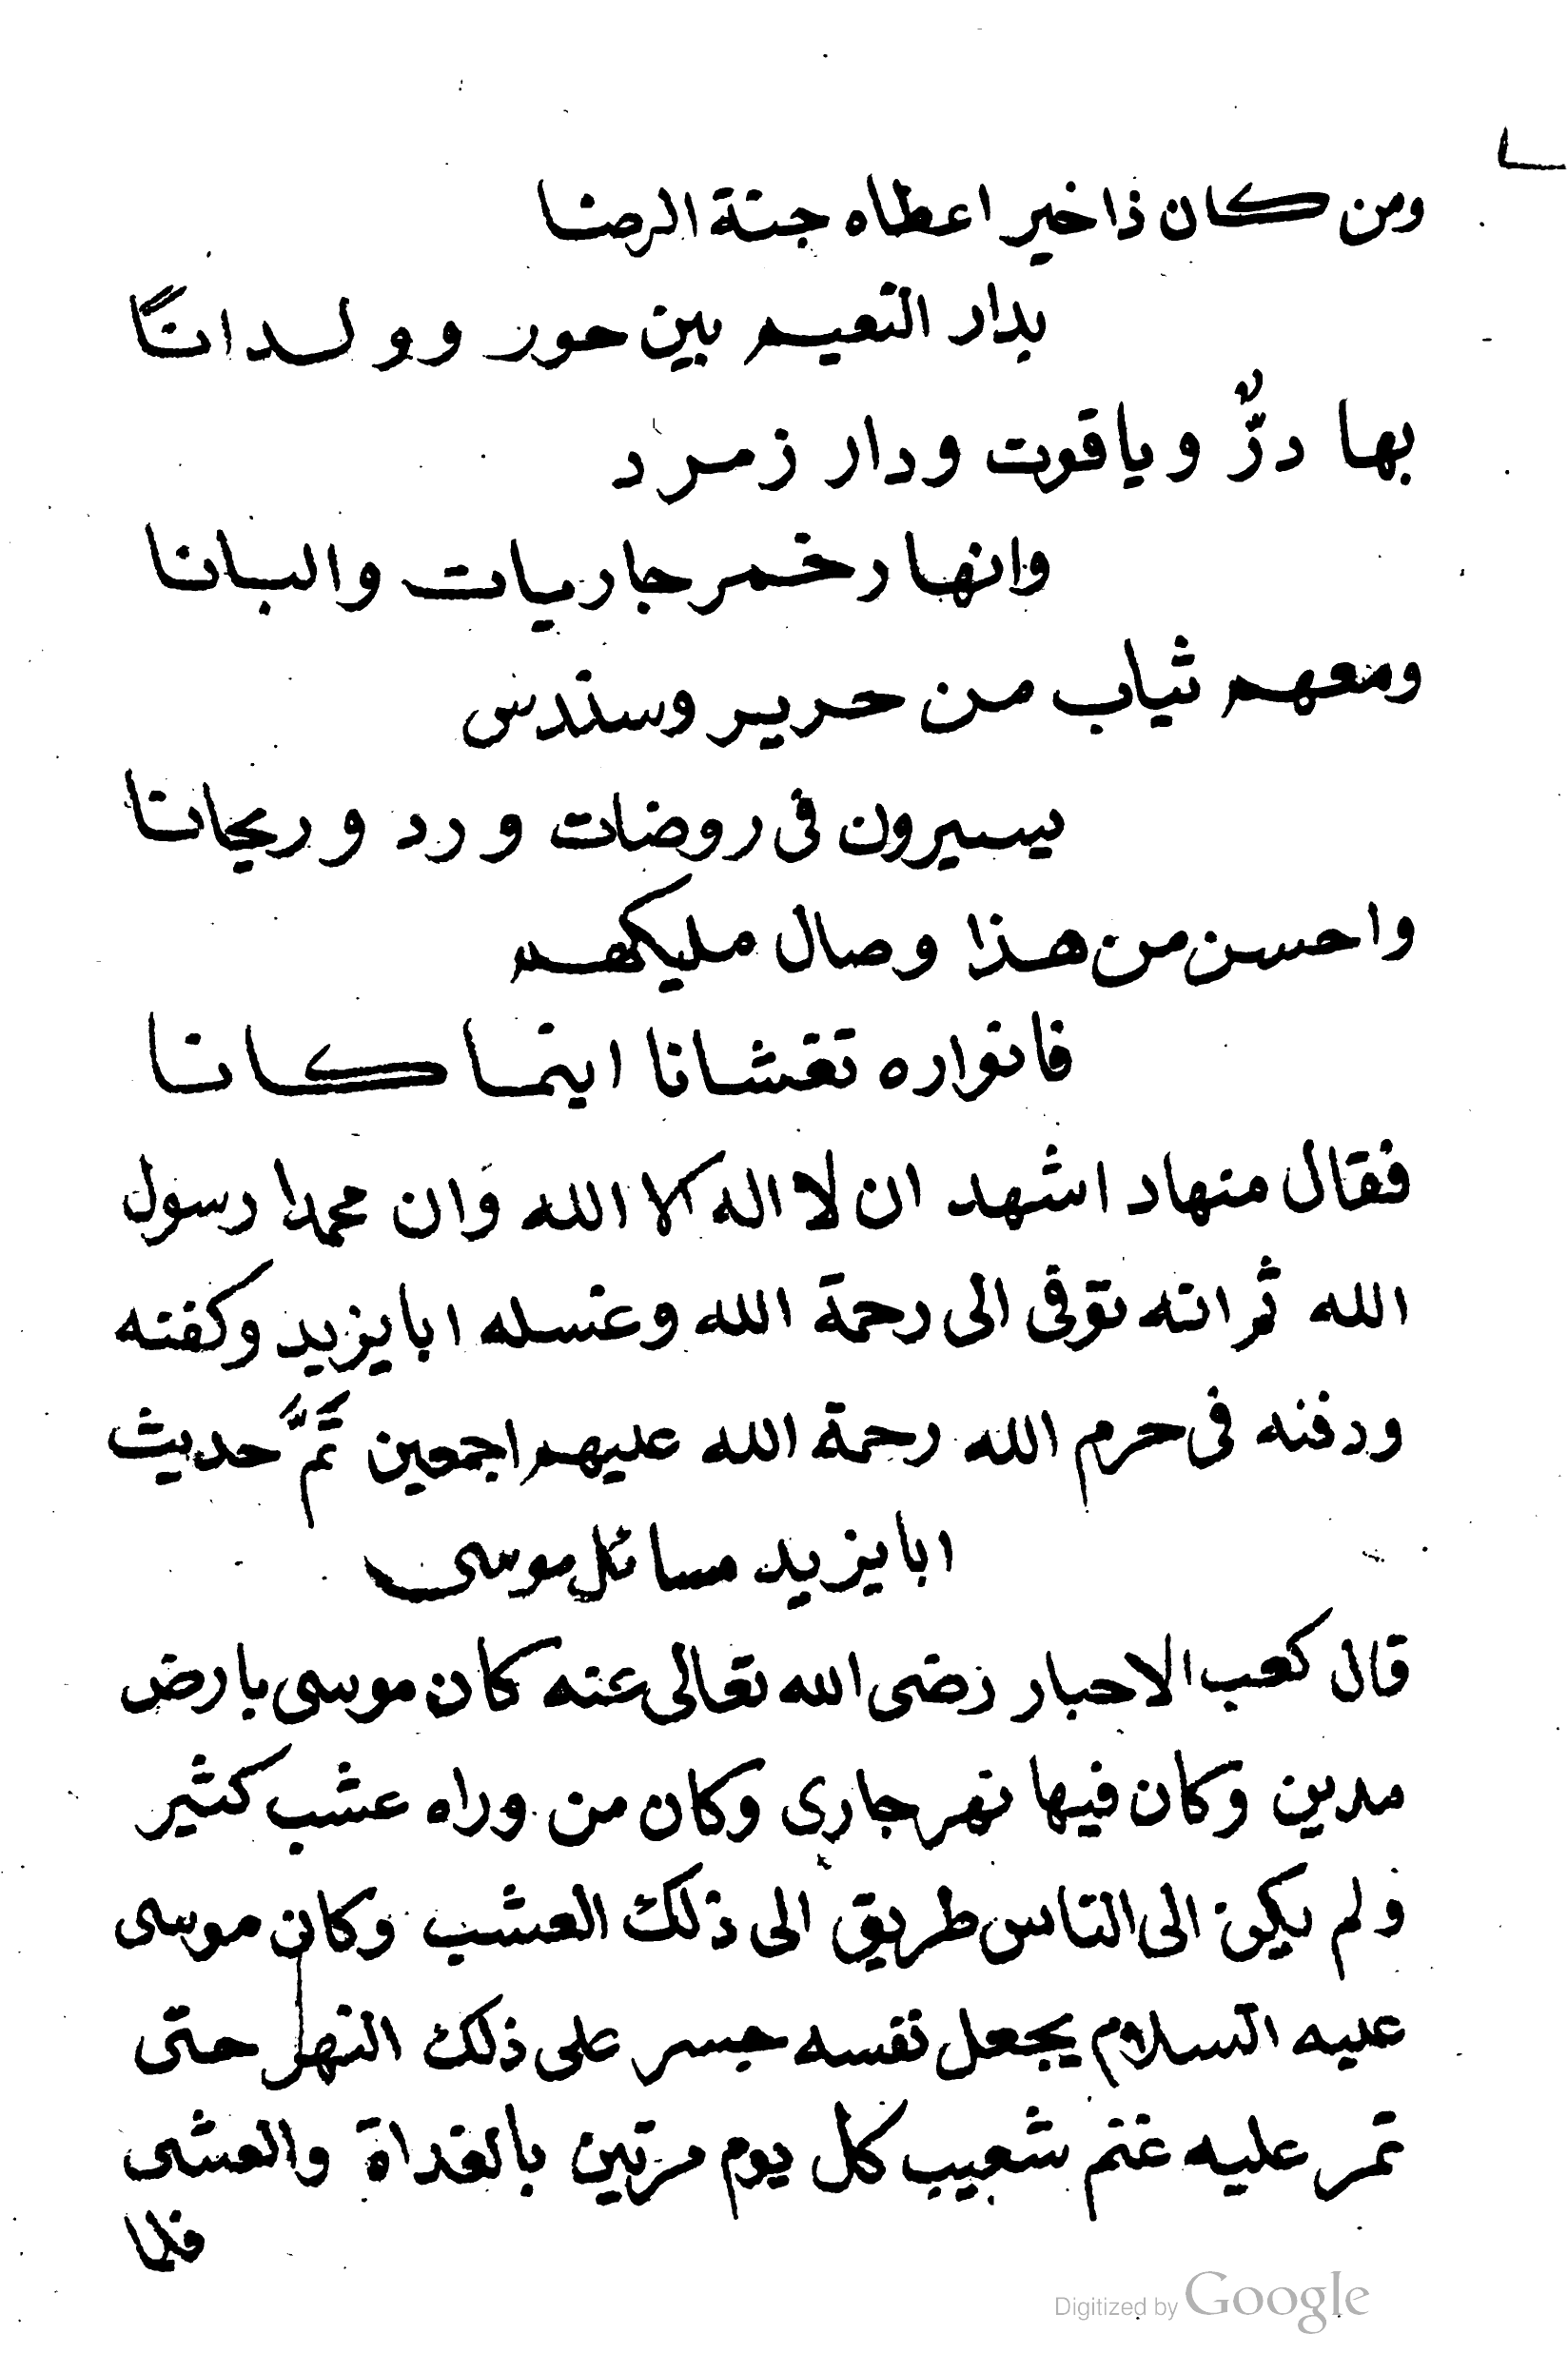 ومن كان ذا خير اعطاه جنة الرضا
بدار النعيم بين حور وولدانًا
بها درٌّ وياقوت ودار زمرد
وانهار خمر جاريات والبانا
ومعهم ثياب من حرير وسندس
يسيرون فى روضات ورد وريحانا
واحسن من هذا وصال مليكهم
فانواره تغشانا اينما كانا
فقال منهاد اشهد ان لا اله الا الله وَان محمدا رسول
الله ثم انه توفى الى رحمة الله وغسله ابا يزيد وكفنه
ودفنه فى حرم الله رحمة الله عليهم اجمعين تَمَّ حديث
ابا يزيد مسائل موسى
قال كعب الاحبار رضى الله تعالى عنه كان موسى بارض
مدين وكان فيها نهر جارى وكان من وراه عشب كثير
ولم يكن الى الناس طريق الى ذلك العشب وكان موسى
عليه السلام يجعل نفسه جسر على ذلك النهر حتى
تمر عليه غنم شعيب كل يوم مرتين بالغداة والعشى
فلما
Digitized by Google